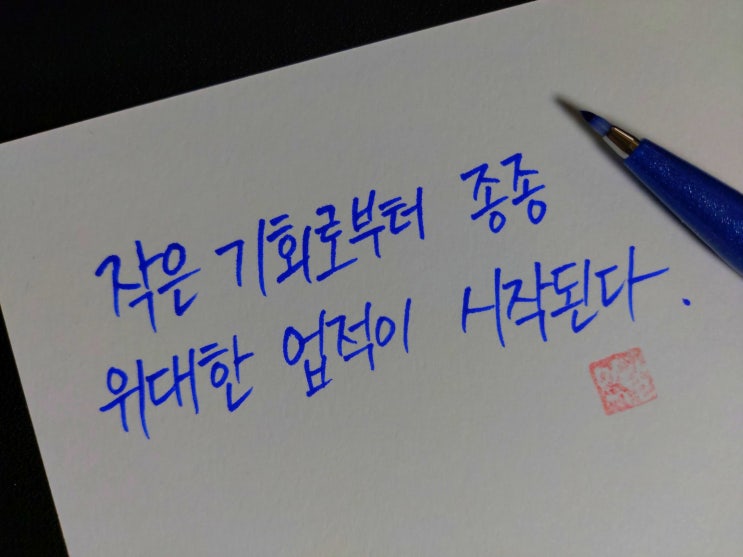 작은 기회로부터 종종
위대한 업적이 시작된다.